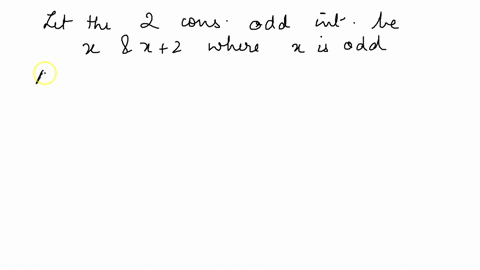 Let the 2 cons. odd int. be
x & x+2 where x is odd